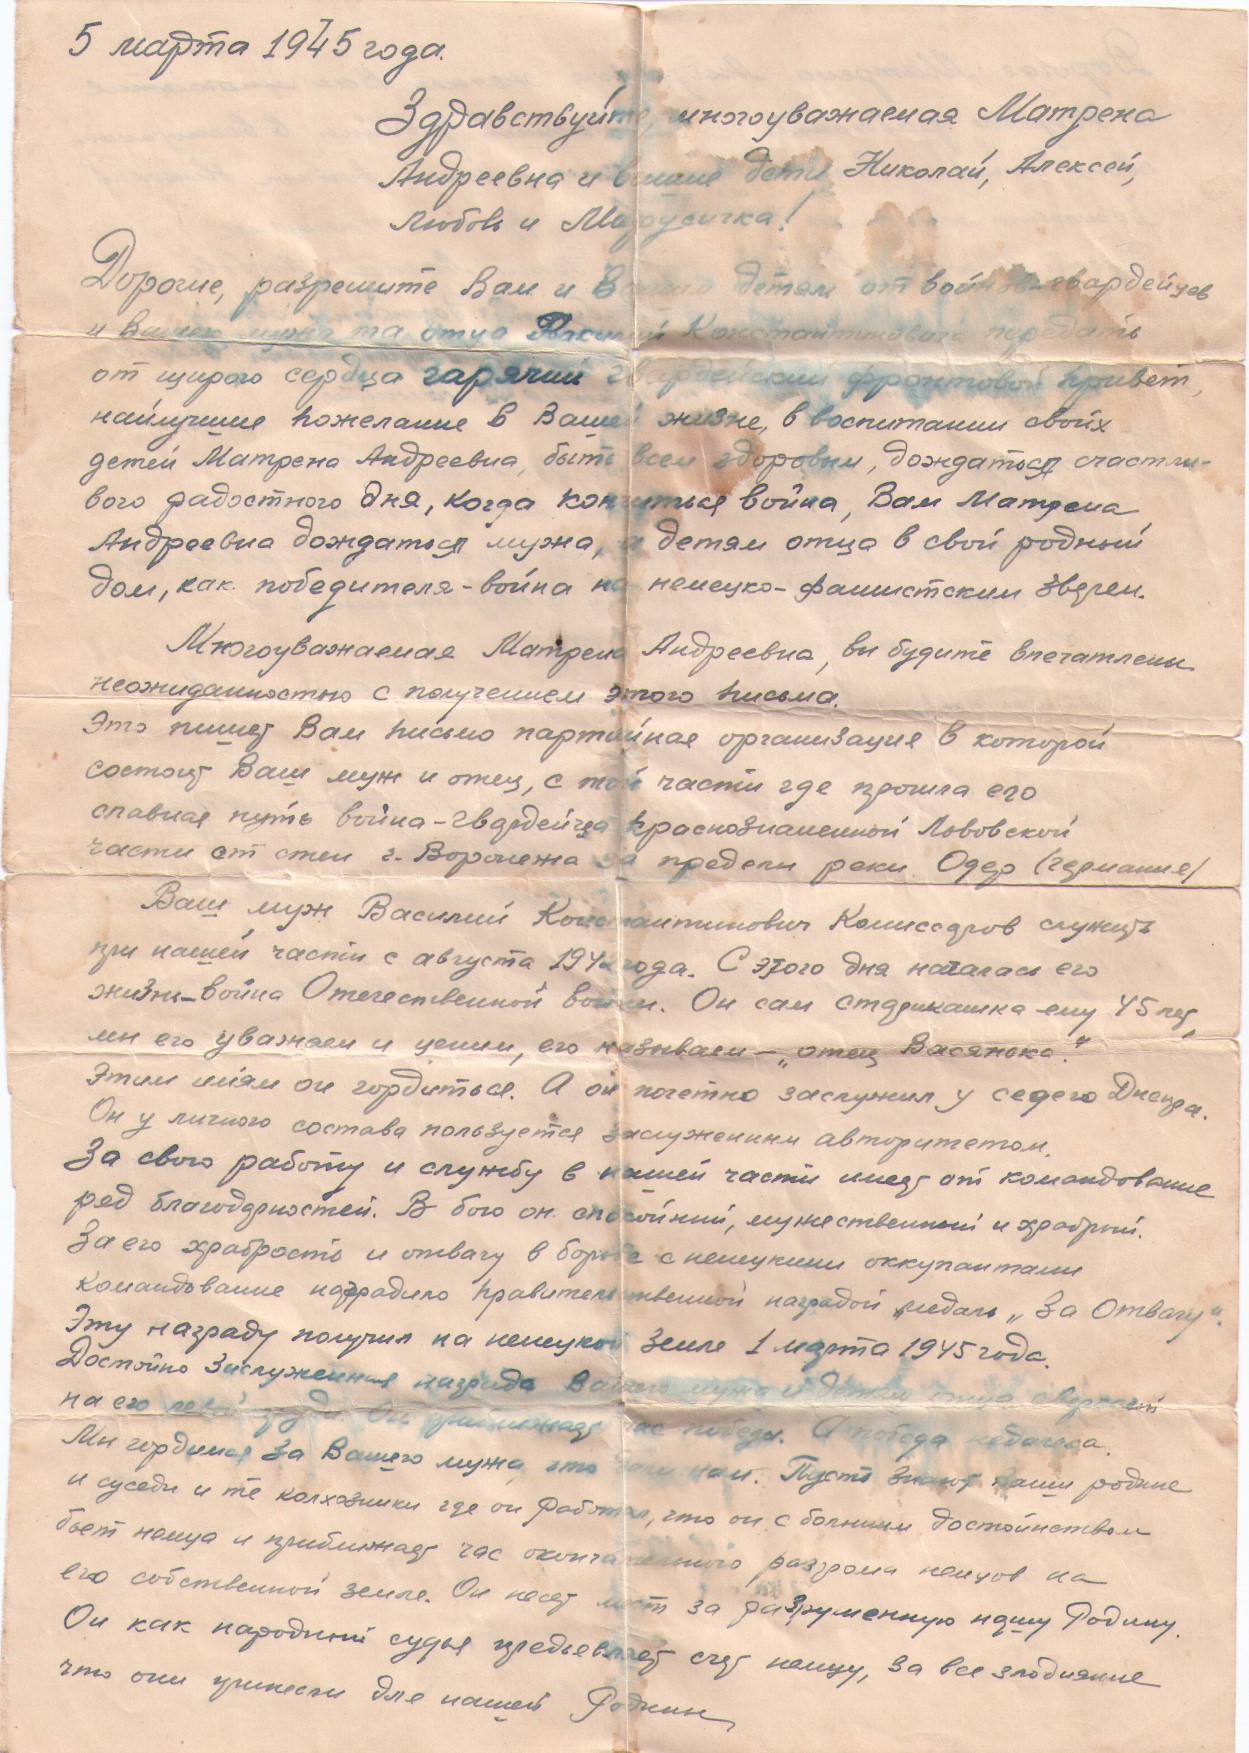 5 марта 1945 года.
Здравствуйте, многоуважаемая Матрена
Андреевна и ваши дети Николай, Алексей,
Любовь и Марусичка!
Дорогие, разрешите Вам и Вашим детям от войнов гвардейцев
и Вашего мужа та отца Василий Константиновича передать
от щирого сердца гарячий гвардейский фронтовой привет,
наилучшие пожелание в Вашей жизне, в воспитании своих
детей Матрена Андреевна, быть всем здоровым, дождаться счастли-
вого радостного дня, когда кончиться война, Вам Матрена
Андреевна дождаться мужа, а детям отца в свой родный
дом, как победителя-война на немецко-фашистским зверем.
Многоуважаемая Матрена Андреевна, вы будите впечатлены
неожиданностью с получением этого письма.
Это пишет Вам письмо партийная организация в которой
состоит Ваш муж и отец, с той части где прошла его
славная путь война-гвардейца Краснознаменной Львовской
части от стен г. Воронежа за предели реки Одер (германия)
Ваш муж Василий Константинович Комиссаров служить
при нашей части с августа 1942 года. С этого дня началась его
жизнь-война Отечественной войны. Он сам старикашка ему 45 лет,
мы его уважаем и ценим, его называем - „отец Васянько."
Этим имям он гордиться. А он почетно заслужил у седего Днепра.
Он у личного состава пользуется заслуженным авторитетом.
За свою работу и службу в нашей части имеет от командование
ряд благодарностей. В бою он спокойний, мужественный и храбрый.
За его храбрость и отвагу в борьбе с немецкими оккупантами
командование наградило правительственной наградой медаль „За Отвагу".
Эту награду получил на немецкой земле 1 марта 1945 года.
Достойно заслуженная награда Вашего мужа и детям отца сверкает
на его левой груди. Он приближает час победы. А победа недалека.
Мы гордимся за Вашего мужа, нам. Пусть знают ваши родные
и суседи и те колхозники где он работал, что он с большим достоинством
бьет немца и приближает час окончательного разгрома немцов на
его собственной земле. Он несет месть за разрушенную нашу Родину.
Он как народный судья предъевляет счет немцу, за все злодияние
что они принесли для нашей Родины,